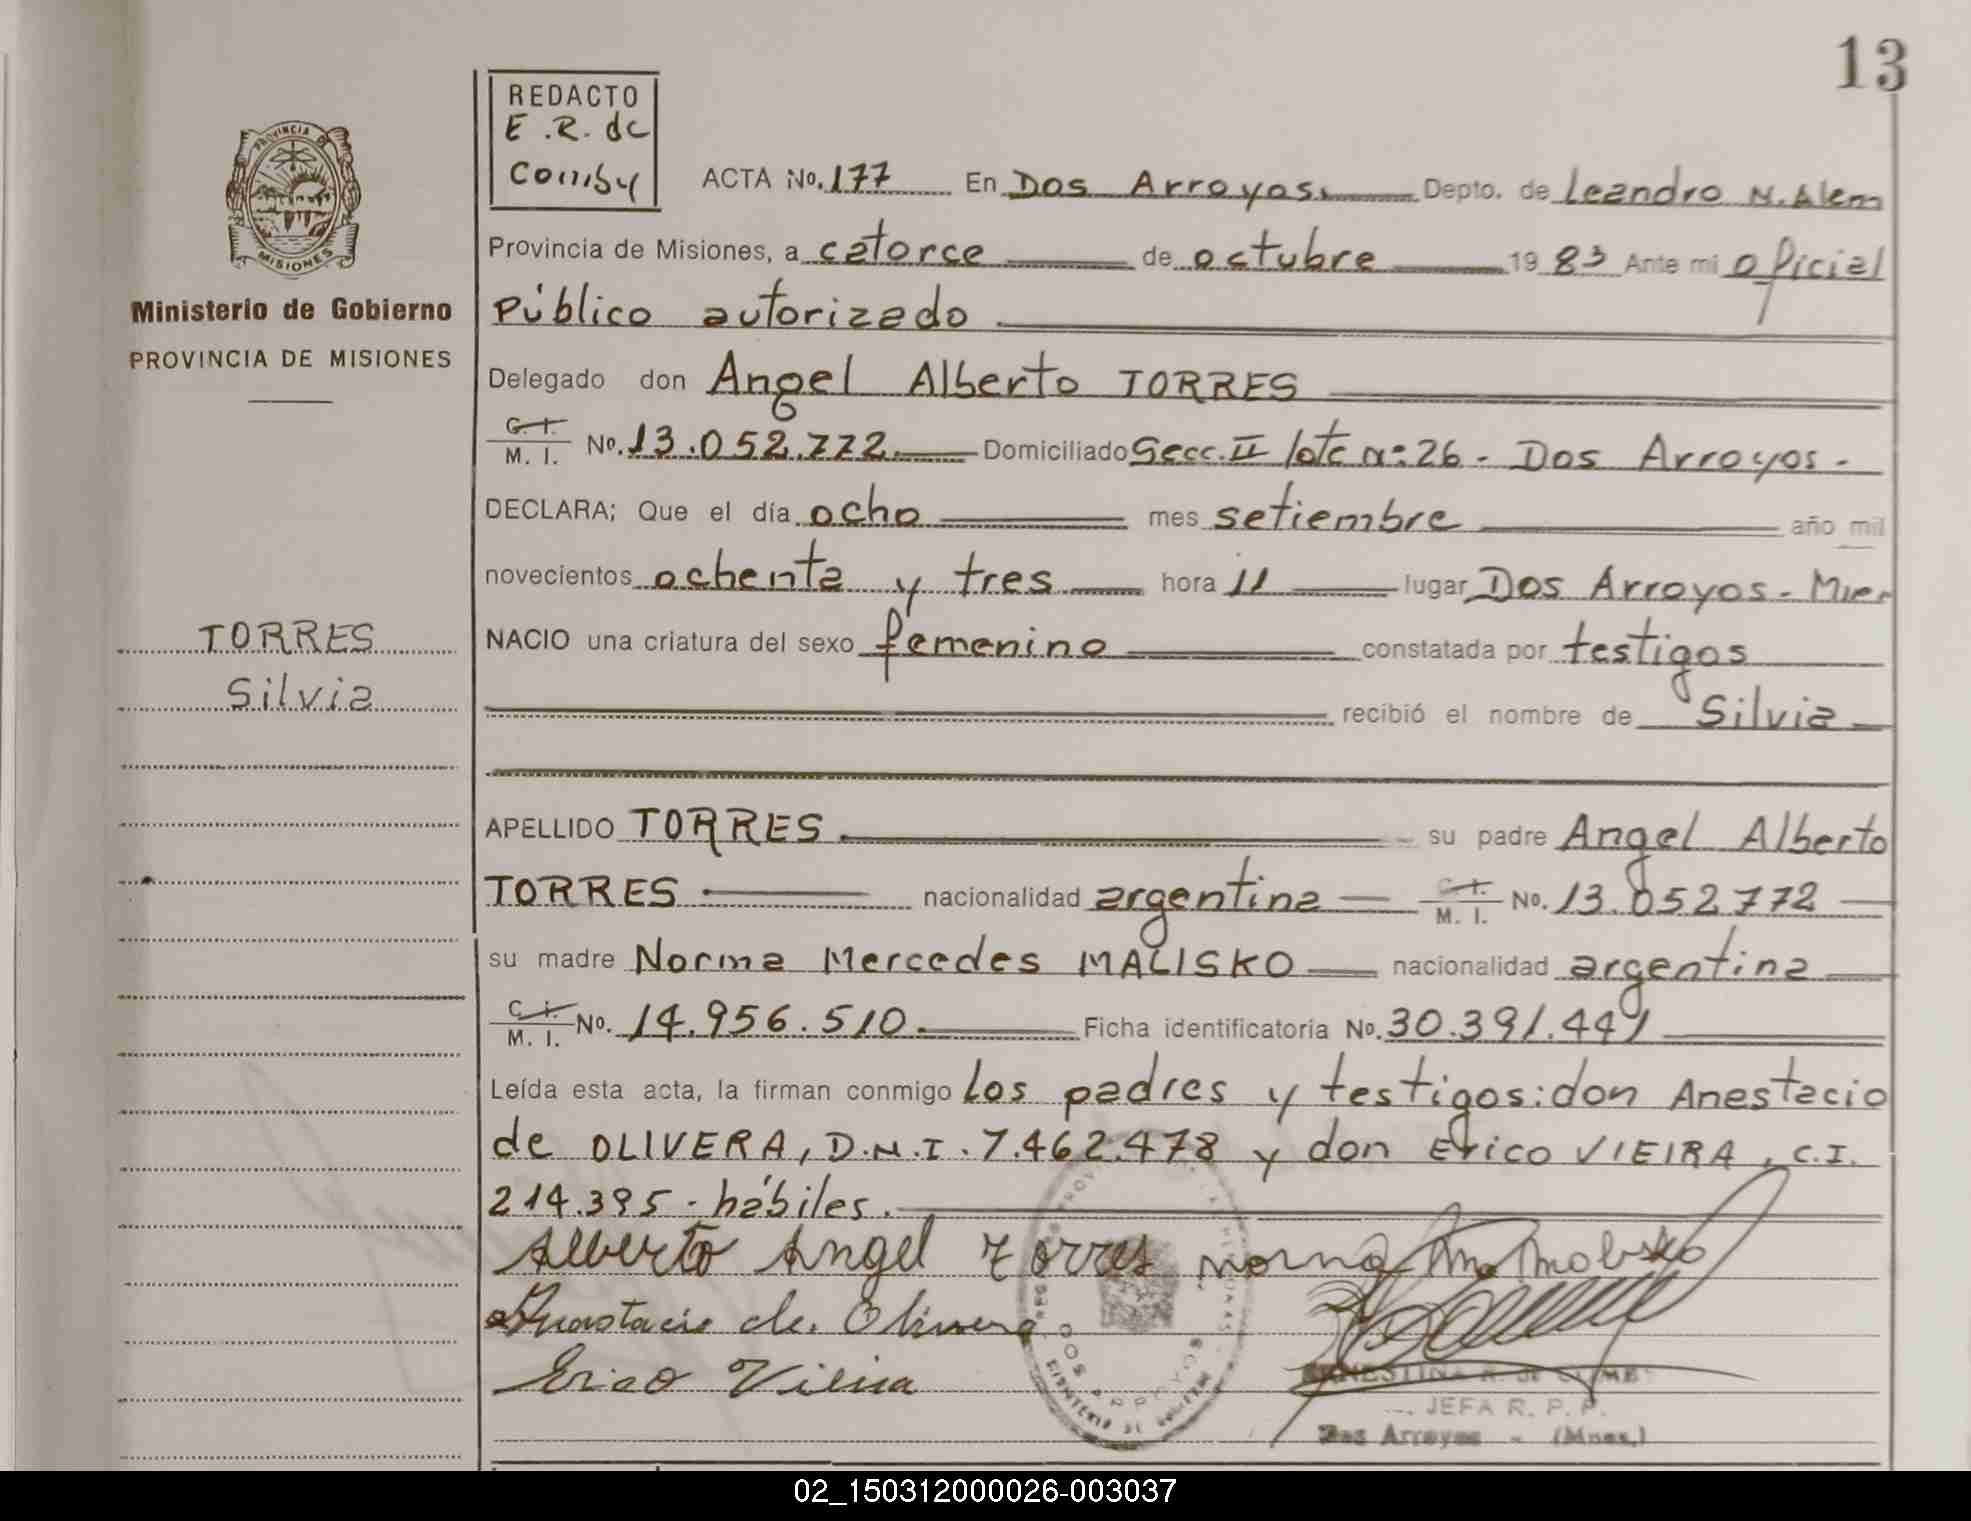 13
REDACTO
E.R. de
Comby
ACTA No. 177 En Dos Arroyos. Depto. de Leandro N. Alem
Provincia de Misiones, a catorce de octubre 1983 Ante mi oficial
Público autorizado
Delegado don Angel Alberto TORRES
C. I. / M. I. No. 13.052.772. Domiciliado Secc. II lote nº 26 - Dos Arroyos -
DECLARA; Que el día ocho mes setiembre año mil
novecientos ochenta y tres hora 11 lugar Dos Arroyos -
NACIO una criatura del sexo femenino constatada por testigos
recibió el nombre de Silvia
APELLIDO TORRES su padre Angel Alberto
TORRES nacionalidad argentina C. I. / M. I. No. 13.052772
su madre Norma Mercedes MALISKO nacionalidad argentina
C. I. / M. I. No. 14.956.510. Ficha identificatoria No. 30.391.449
Leída esta acta, la firman conmigo los padres y testigos: don Anastacio
de OLIVERA, D.N.I. 7.462.478 y don Erico VIEIRA, C.I.
214.395 - hábiles.
Alberto Angel Torres Norma
Anastacio de Olivera
Erico Vieira
JEFA R. P. P.
Dos Arroyos - (Mnes.)
DOS ARROYOS
MINISTERIO DE GOBIERNO
PROVINCIA DE
MISIONES
Ministerio de Gobierno
PROVINCIA DE MISIONES
TORRES
Silvia
02_150312000026-003037